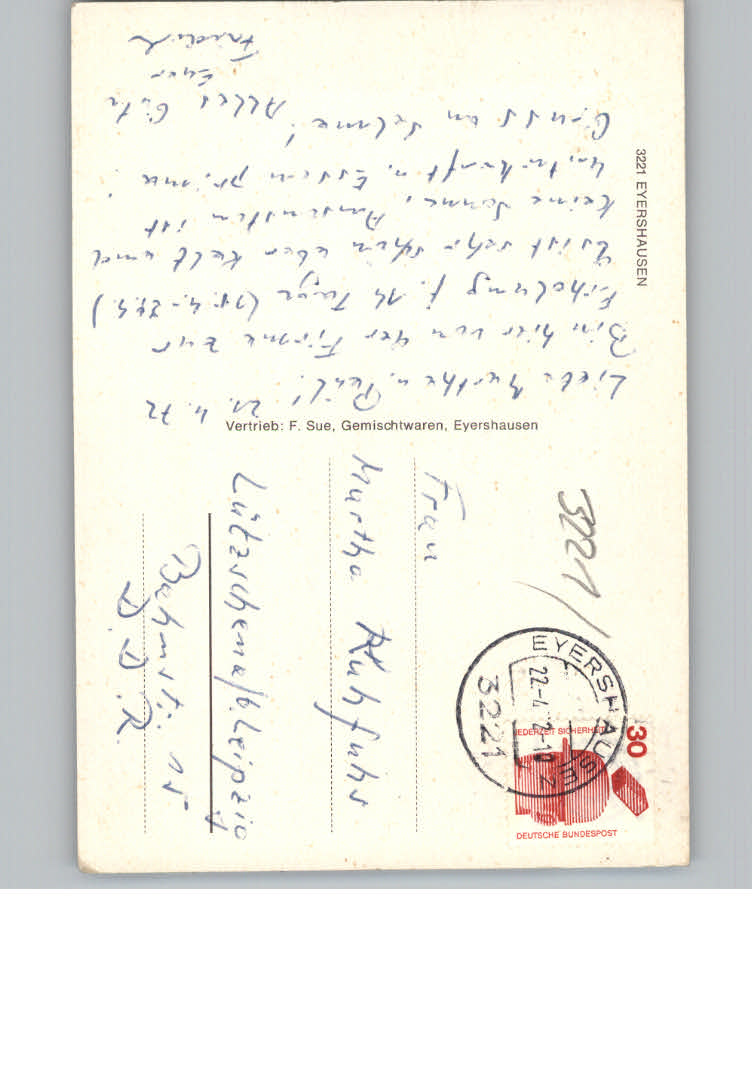 21. 4. 72
Liebe Martha u. Paul!
Bin hier von der Firma zur
Erholung f. 14 Tage
Es ist sehr schön aber kalt und
keine Sonne. Ansonsten ist
Unterkunft u. Essen prima!
Gruss an Selma! Alles Gute
Euer
Friedrich
3221 EYERSHAUSEN
Vertrieb: F. Sue, Gemischtwaren, Eyershausen
3221/
EYERSHAUSEN
22.-4.72-10
3221
30
JEDERZEIT SICHERHEIT
DEUTSCHE BUNDESPOST
Frau
Martha Kühfuhs
Lützschena/b. Leipzig
Bahnstr. 15
D.D.R.